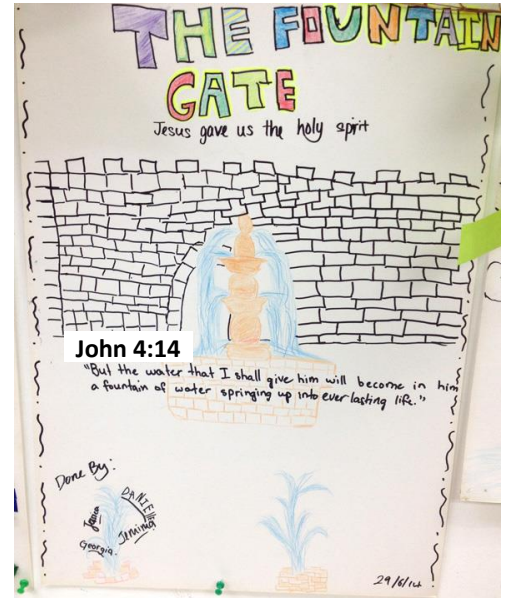 THE FOUNTAIN
GATE
Jesus gave us the holy spirit
John 4:14
"But the water that I shall give him will become in him
a fountain of water springing up into everlasting life."
Done By:
DANIELLE
Jessica
Jemima
Georgia.
29/6/14